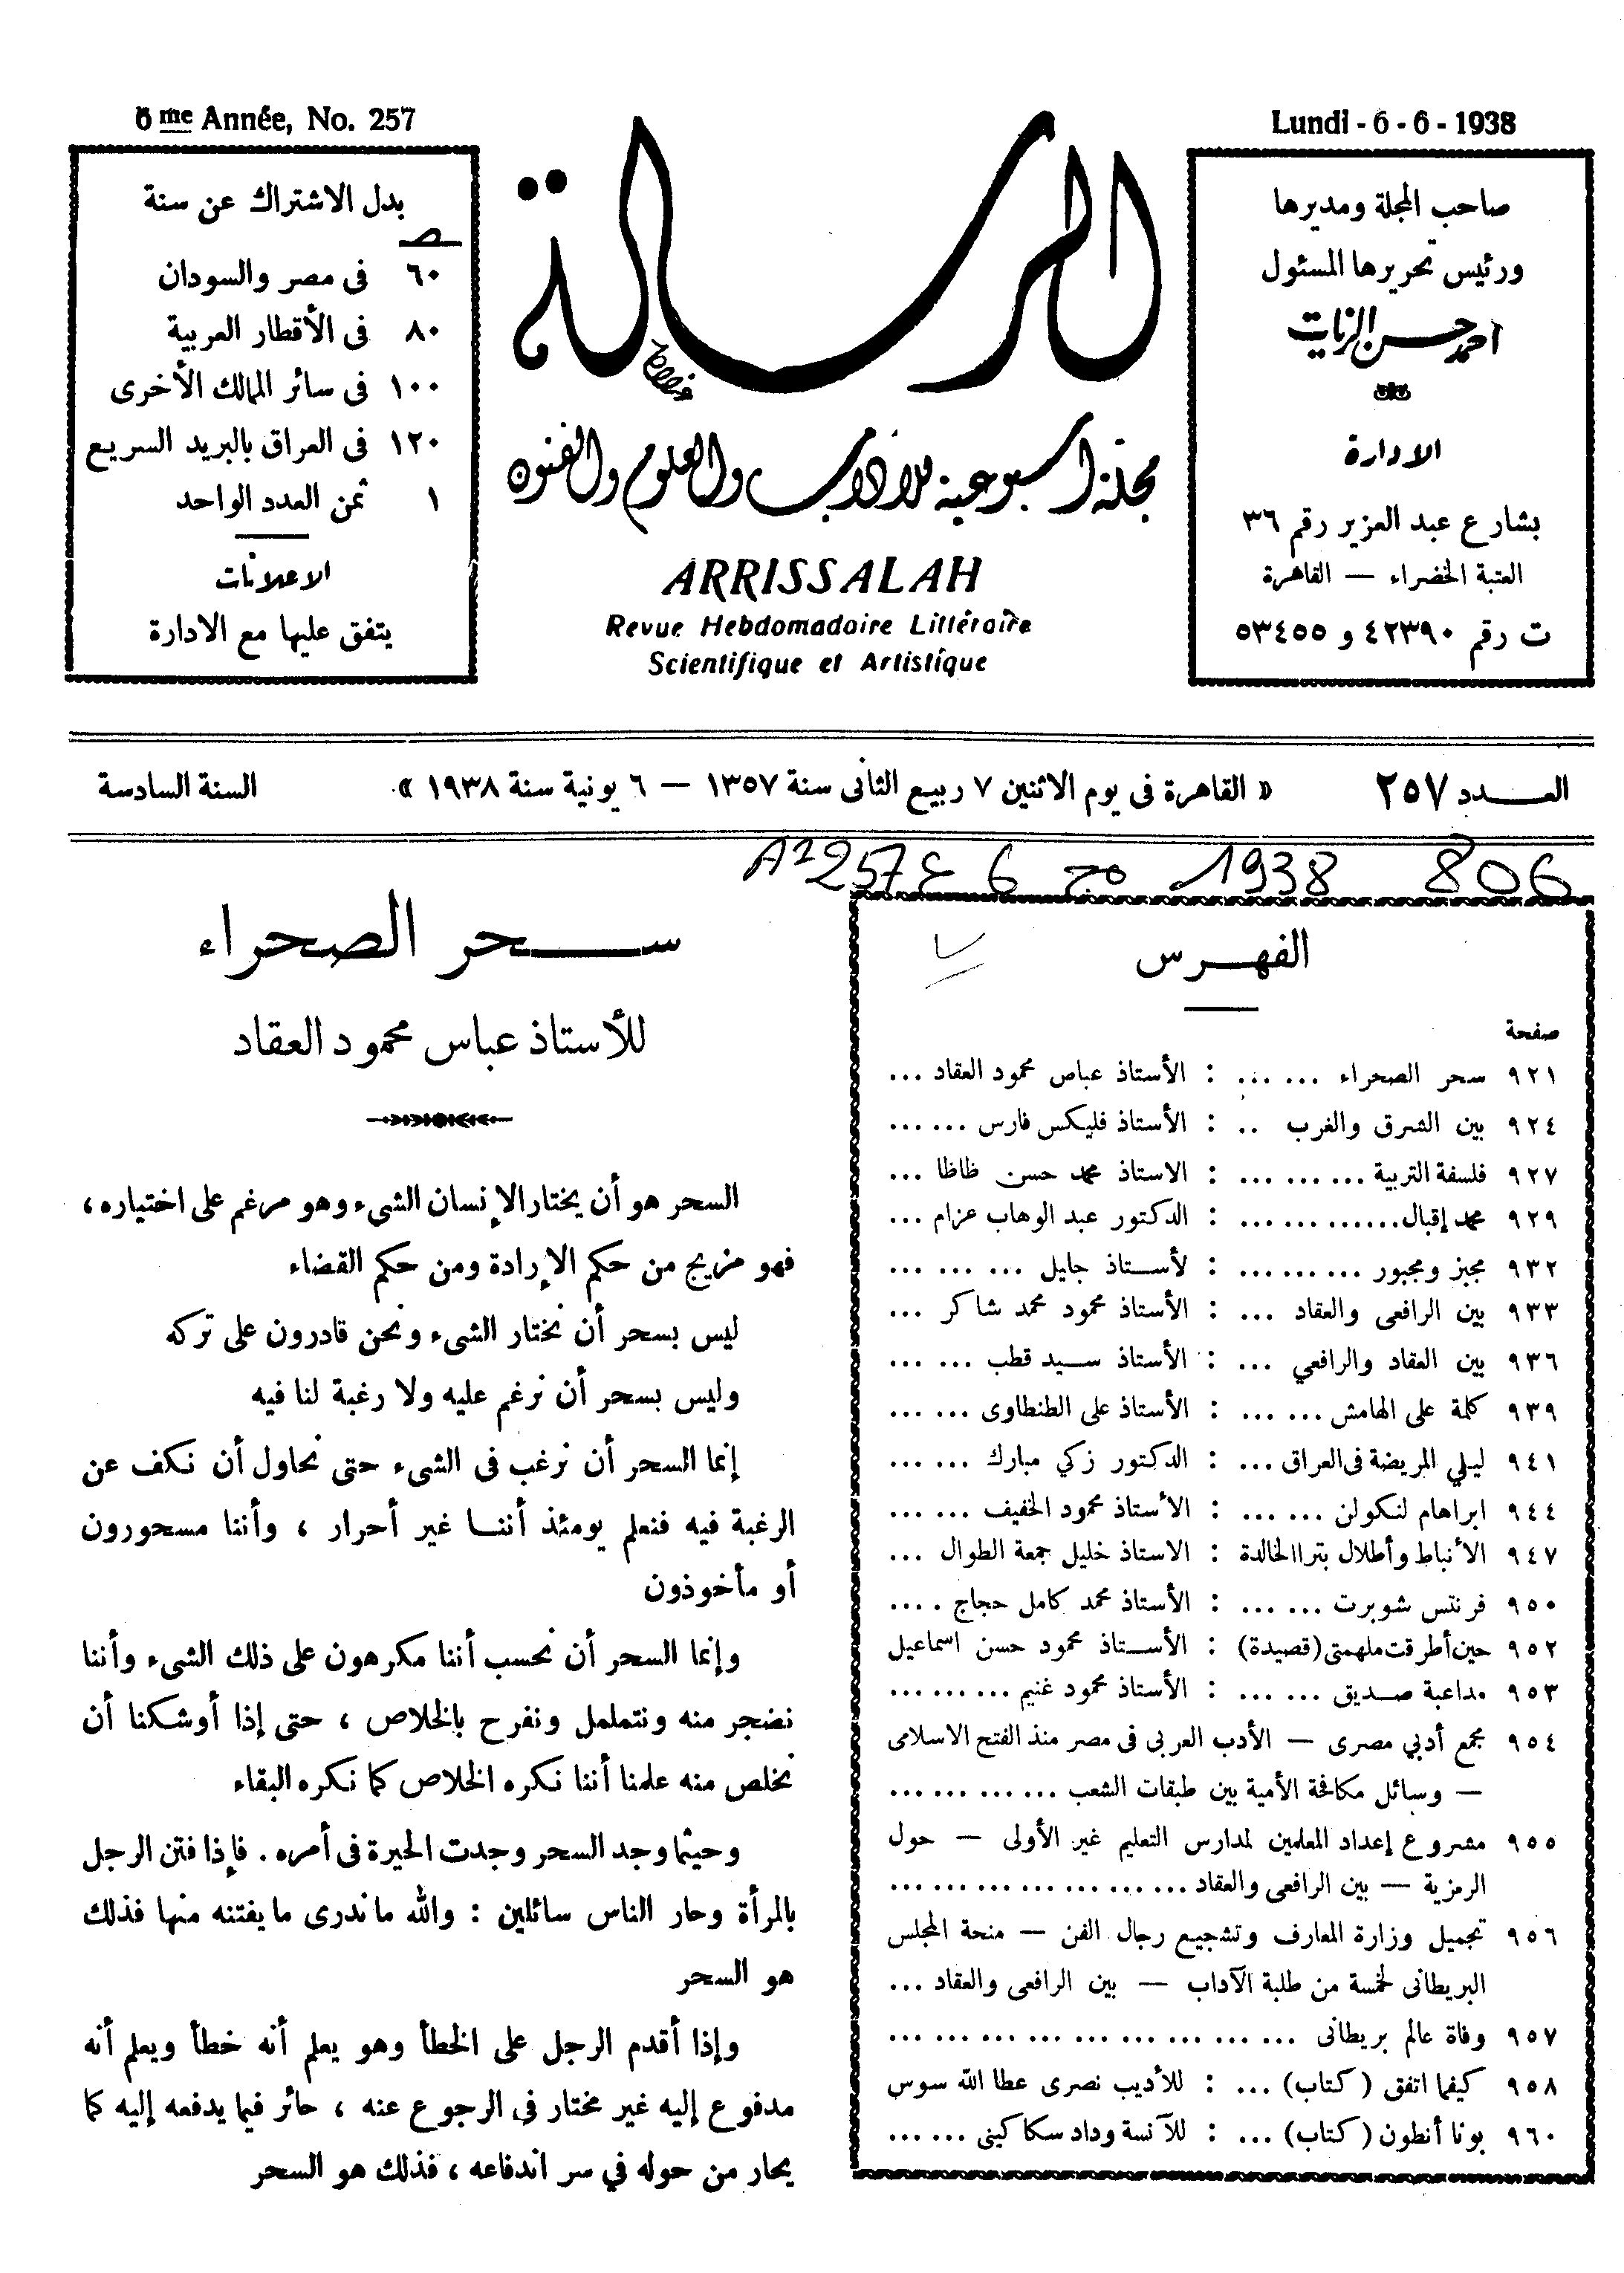 6me Année, No. 257
Lundi - 6 - 6 - 1938
صاحب المجلة ومديرها
ورئيس تحريرها المسئول
احمد حسن الزيات
الادارة
بشارع عبد العزيز رقم ٣٦
العتبة الخضراء — القاهرة
ت رقم ٤٢٣٩٠ و ٥٣٤٥٥
الرسالة
مجلة أسبوعية للآداب والعلوم والفنون
ARRISSALAH
Revue Hebdomadaire Littéraire
Scientifique et Artistique
بدل الاشتراك عن سنة
ص
٦٠ فى مصر والسودان
٨٠ فى الأقطار العربية
١٠٠ فى سائر الممالك الأخرى
١٢٠ فى العراق بالبريد السريع
١ ثمن العدد الواحد
الاعلانات
يتفق عليها مع الادارة
العـــدد ٢٥٧ « القاهرة فى يوم الاثنين ٧ ربيع الثانى سنة ١٣٥٧ — ٦ يونية سنة ١٩٣٨ » السنة السادسة
1938 806
الفهـــرس
صفحة
٩٢١ سحر الصحراء ... ... : الأستاذ عباص محمود العقاد ...
٩٢٤ بين الشرق والغرب .. : الأستاذ فليكس فارس ... ...
٩٢٧ فلسفة التربية ... ... ... : الاستاذ محمد حسن ظاظا ...
٩٢٩ محمد إقبال... ... ... ... : الدكتور عبد الوهاب عزام ...
٩٣٢ مجبز ومجبور ... ... ... : لأســتاذ جايل ... ... ...
٩٣٣ بين الرافعى والعقاد ... : الأستاذ محمود محمد شاكر ...
٩٣٦ بين العقاد والرافعي ... : الأستاذ ســيد قطب ... ...
٩٣٩ كلمة على الهامش ... ... : الأستاذ على الطنطاوى ... ...
٩٤١ ليلي المريضة فى العراق ... : الدكتور زكي مبارك ... ...
٩٤٤ ابراهام لنكولن ... ... : الأستاذ محمود الخفيف ... ...
٩٤٧ الأنباط وأطلال بترا الخالدة : الاستاذ خليل جمعة الطوال ...
٩٥٠ فرنتس شوبرت ... ... : الأستاذ محمد كامل حجاج . ...
٩٥٢ حين أطرقت ملهمتى (قصيدة) : الأســتاذ محمود حسن اسماعيل
٩٥٣ مداعبة صــديق ... ... : الأستاذ محمود غنيم ... ... ...
٩٥٤ مجمع أدبي مصرى — الأدب العربى فى مصر منذ الفتح الاسلامى
— وسائل مكافحة الأمية بين طبقات الشعب ... ... ... ...
٩٥٥ مشروع إعداد المعلمين لمدارس التعليم غير الأولى — حول
الرمزية — بين الرافعى والعقاد ... ... ... ... ... ... ...
٩٥٦ تجميل وزارة المعارف وتشجيع رجال الفن — منحة المجلس
البريطانى لخمسة من طلبة الآداب — بين الرافعى والعقاد ...
٩٥٧ وفاة عالم بريطانى ... ... ... ... ... ... ... ... ...
٩٥٨ كيفما اتفق (كتاب) ... : للأديب نصرى عطا الله سوس
٩٦٠ بونا أنطون (كتاب) ... : للآنسة وداد سكاكينى ... ...
ســـحر الصحراء
للأستاذ عباس محمود العقاد
السحر هو أن يختار الإنسان الشىء وهو مرغم على اختياره،
فهو مزيج من حكم الإرادة ومن حكم القضاء
ليس بسحر أن نختار الشىء ونحن قادرون على تركه
وليس بسحر أن نرغم عليه ولا رغبة لنا فيه
إنما السحر أن نرغب فى الشىء حتى نحاول أن نكف عن
الرغبة فيه فنعلم يومئذ أننــا غير أحرار ، وأننا مسحورون
أو مأخوذون
وإنما السحر أن نحسب أننا مكرهون على ذلك الشىء وأننا
نضجر منه ونتململ ونفرح بالخلاص ، حتى إذا أوشكنا أن
نخلص منه علمنا أننا نكره الخلاص كما نكره البقاء
وحيثما وجد السحر وجدت الحيرة فى أمره . فإذا فتن الرجل
بالمرأة وحار الناس سائلين : والله ما ندرى ما يفتنه منها فذلك
هو السحر
وإذا أقدم الرجل على الخطأ وهو يعلم أنه خطأ ويعلم أنه
مدفوع إليه غير مختار فى الرجوع عنه ، حائر فيما يدفعه إليه كما
يحار من حوله في سر اندفاعه ، فذلك هو السحر